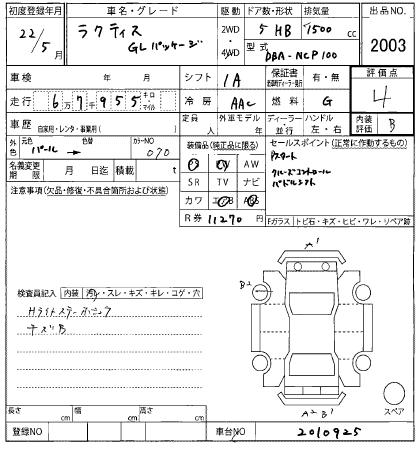 初度登録年月 車名・グレード 駆動 ドア数・形状 排気量 出品NO.
22/5月 ラクティス GLパッケージ 2WD・4WD 5 HB 1500 cc 2003
型式 DBA-NCP100
車検 年 月 シフト IA 保証書 有・無 評価点
走行 6万7千955キロ・マイル 冷房 AAC 燃料 G 4
車歴 自家用・レンタ・事業用( ) 定員 人 外車モデル 年 ディーラー 並行 ハンドル 左・右 内装評価 B
外色 元色 パール→ 色替 カラーNO 070 装備品(純正品に限る) セールスポイント(正常に作動するもの)
PS PW AW Pスタート
名義変更期限 月 日迄 積載 t SR TV ナビ クルーズコントロール
注意事項(欠品・修復・不具合箇所および状態) カワ エアB パドルシフト
R券 11270円 Fガラス トビ石・キズ・ヒビ・ワレ・リペア跡
A1
検査員記入 内装 汚れ・スレ・キズ・キレ・コゲ・穴 B2
Hライトステーボンネット
キズB
A2B1 スペア
長さ cm 幅 cm 高さ cm
登録NO 車台NO 2010925